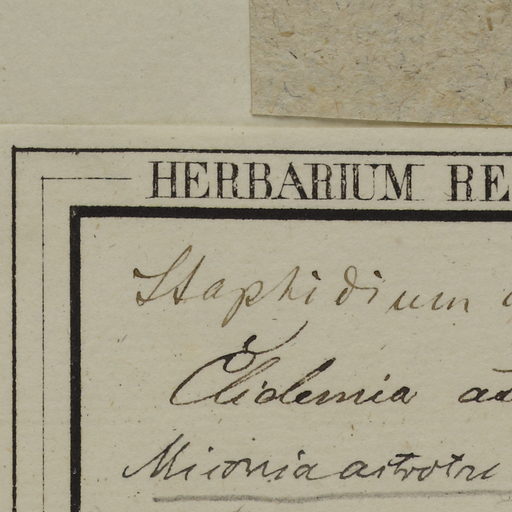 HERBARIUM RE
Staphidium
Clidemia
Miconia astrotri